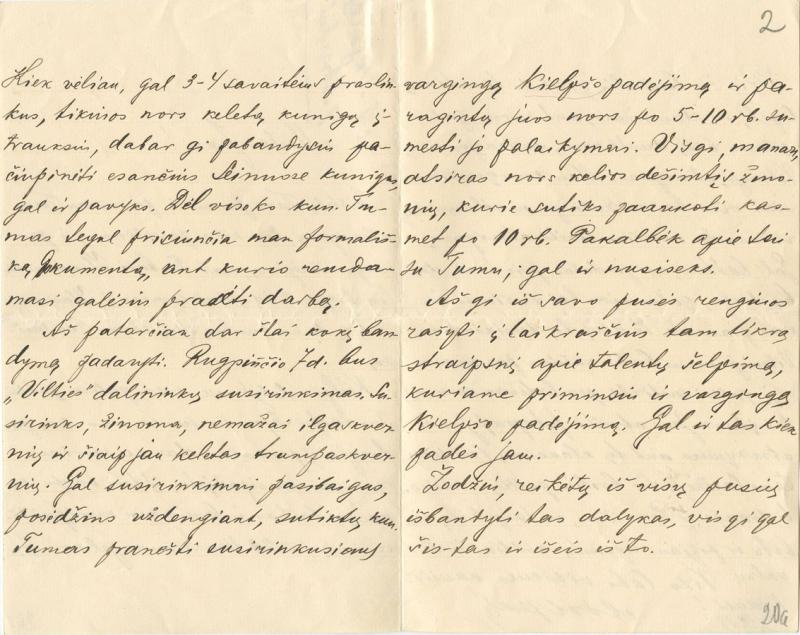 2
Kiek vėliau, gal 3-4 savaitėms praslin-
kus, tikiuos nors keletą kunigų į-
trauksiu, dabar gi pabandysiu pa-
čiupinėti esančius Seinuose kunigus,
gal ir pavyks. Dėl visoko kun. Tu-
mas tegul prisiunčia man formališ-
ką dokumentą, ant kurio remda-
masi galėsiu pradėti darbą.
Aš patarčiau dar štai kokį ban-
dymą padaryti. Rugpiučio 7 d. bus
„Vilties" dalininkų susirinkimas. Su-
sirinks, žinoma, nemažai ilgaskver-
nių ir šiaip jau keletas trumpaskver-
nių. Gal susirinkimui pasibaigus,
posėdžius uždengiant, sutiktų kun.
Tumas pranešti susirinkusiems
vargingą Kielpšo padėjimą ir pa-
ragintų juos nors po 5-10 rb. su-
mesti jo palaikymui. Visgi, manau,
atsiras nors kelios dešimtįs žmo-
nių, kurie sutiks paaukoti kas-
met po 10 rb. Pakalbėk apie tai
su Tumu; gal ir nusiseks.
Aš gi iš savo pusės rengiuos
rašyti į laikraščius tam tikrą
straipsnį apie talentų šelpimą,
kuriame priminsiu ir vargingą
Kielpšo padėjimą. Gal ir tas kiek
padės jam.
Žodžiu, reikėtų iš visų pusių
išbandyti tas dalykas, vis gi gal
šis-tas ir išeis iš to.
20a